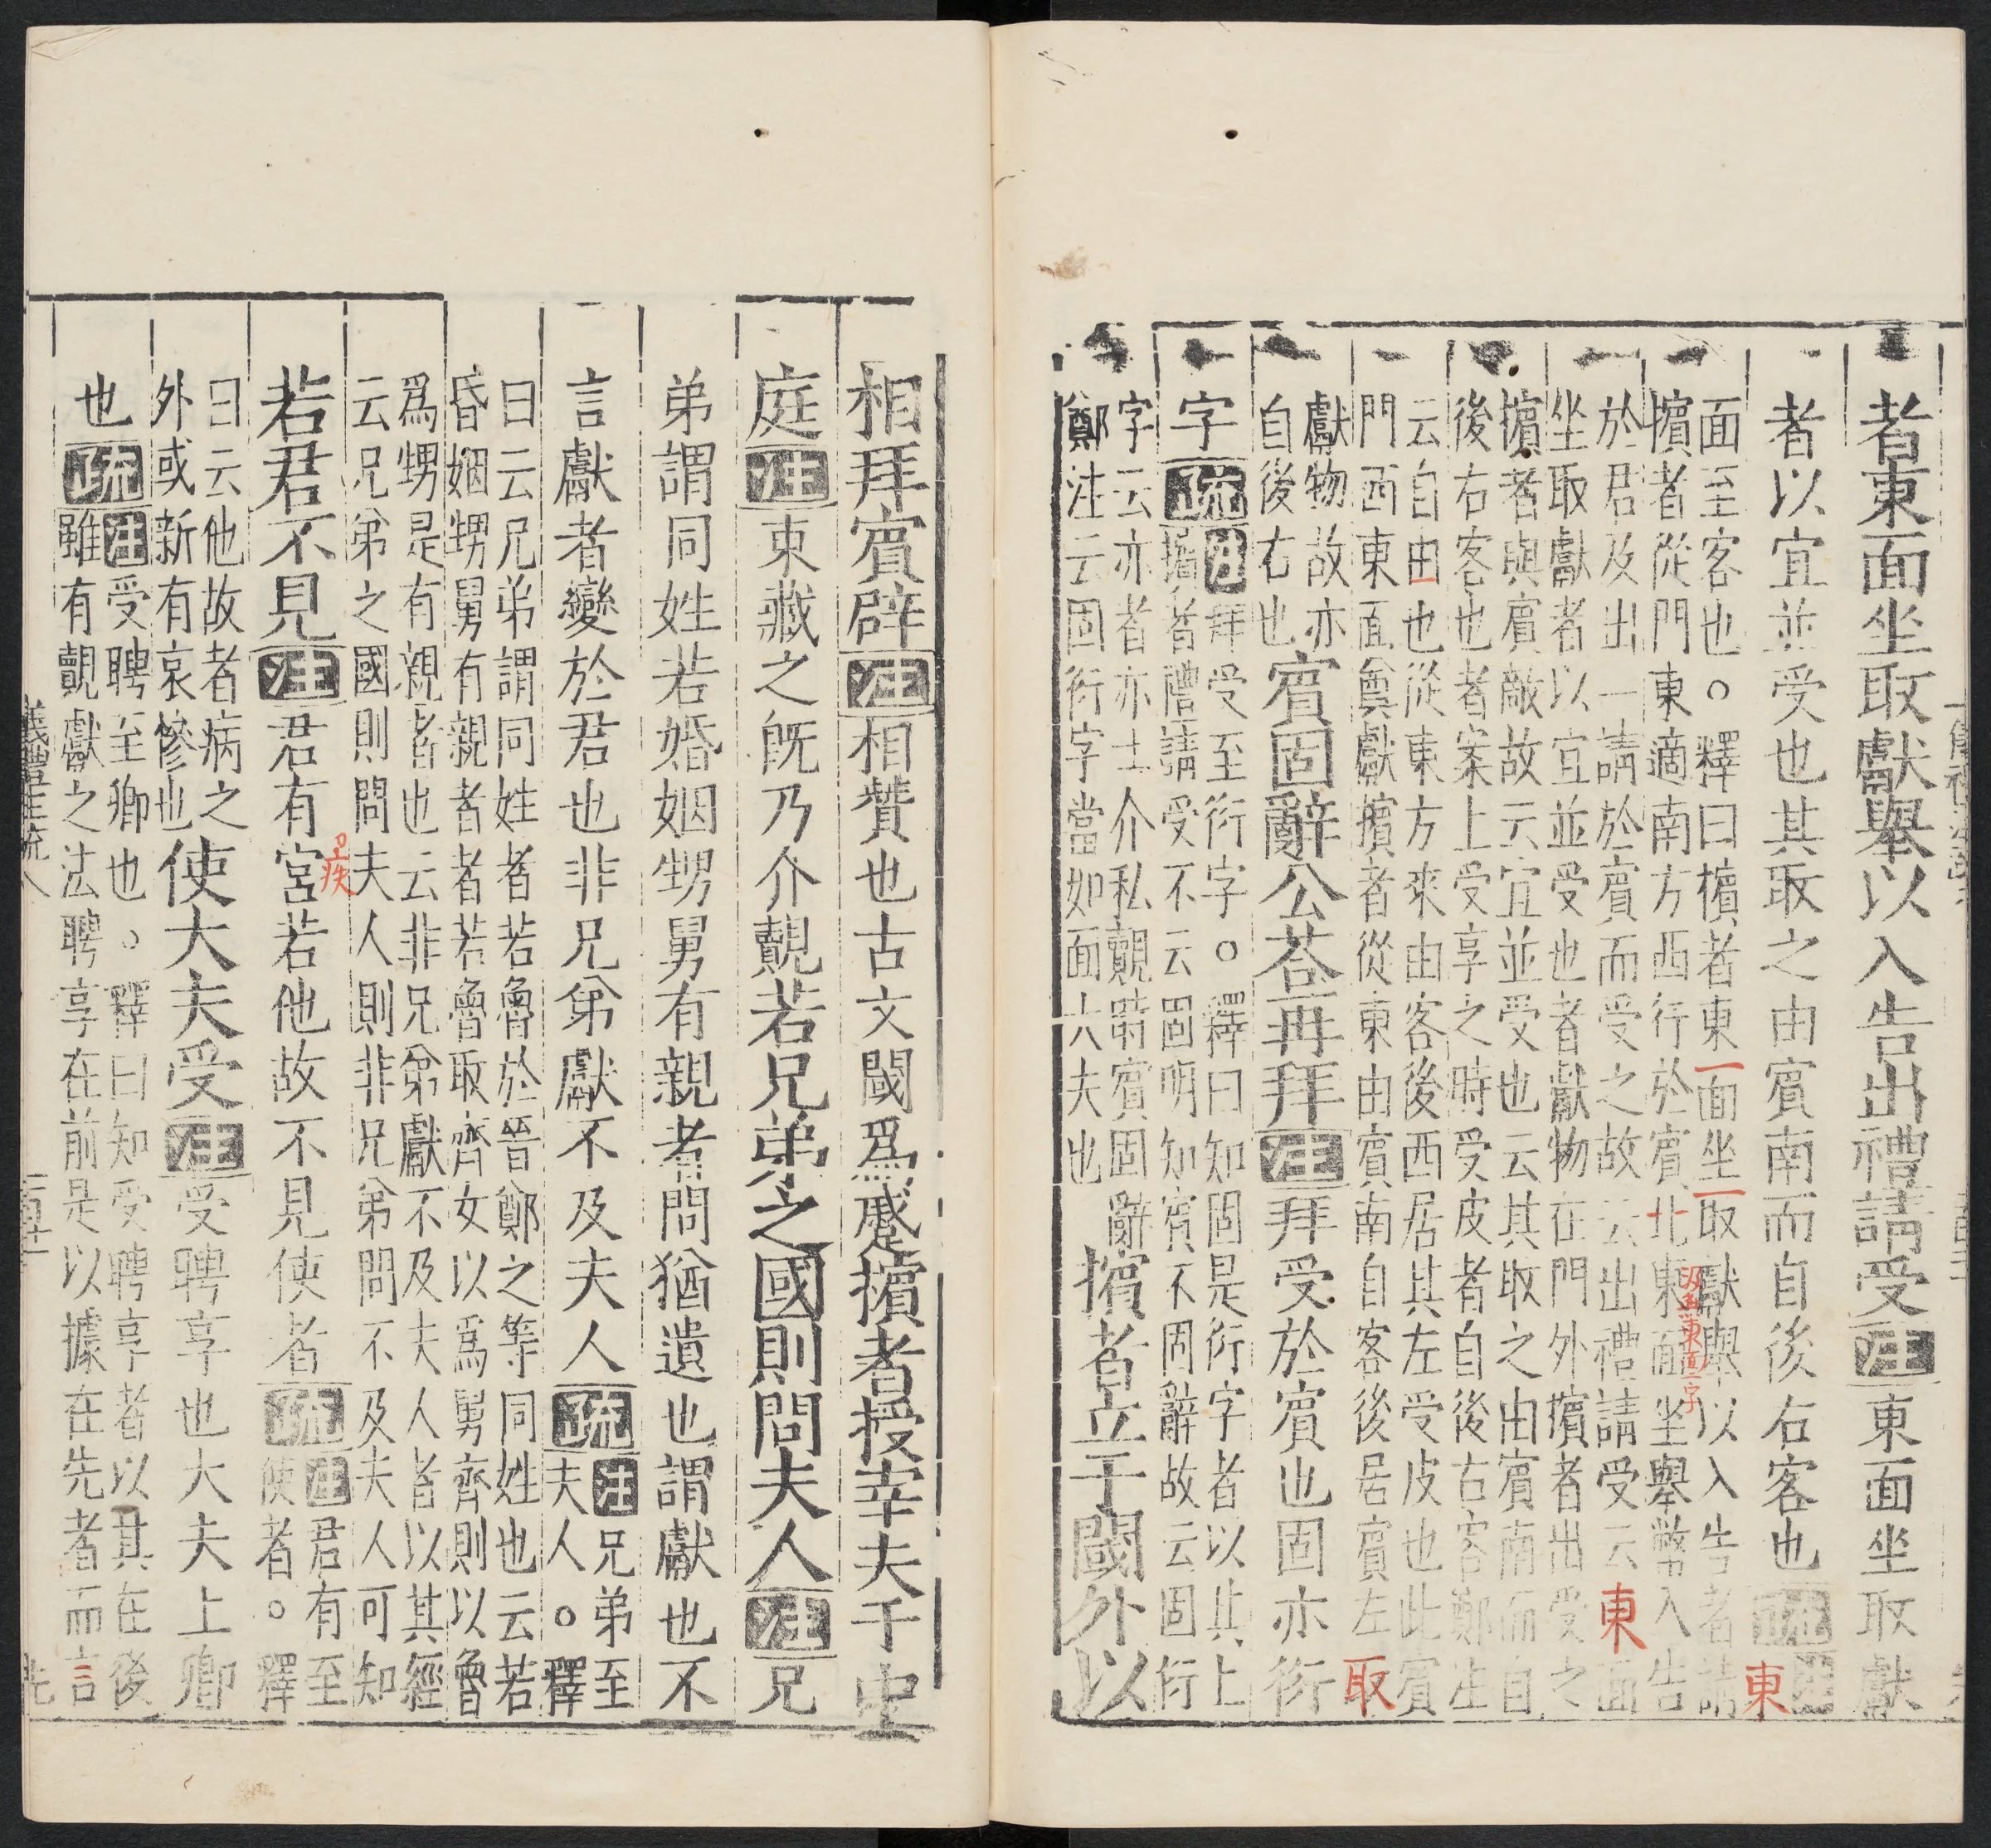 者東面坐取獻舉以入告出禮請受注東面坐取獻
者以宜並受也其取之由賓南而自後右客也疏注東
面至客也○釋曰擯者東面坐取獻舉以入告者請
擯者從門東適南方西行於賓北東面坐舉幣入告
於君及出一請於賓而受之故云出禮請受云東面
坐取獻者以宜並受也者獻物在門外擯者出受之
擯者與賓敵故云宜並受也云其取之由賓南而自
後右客也者案上受享之時受皮者自後右客鄭注
云自由也從東方來由客後西居其左受皮也此賓
門西東面奠獻擯者從東由賓南自客後居賓左取
獻物故亦
自後右也
賓固辭公荅再拜注拜受於賓也固亦衍
字疏注拜受至衍字○釋曰知固是衍字者以其上
擯者禮請受不云固明知賓不固辭故云固衍
字云亦者亦士介私覿時賓固辭
鄭注云固衍字當如面大夫也
擯者立于閾外以
相拜賓辟注相贊也古文閾爲蹙擯者授宰夫于中
庭注東藏之旣乃介覿若兄弟之國則問夫人注兄
弟謂同姓若婚姻甥舅有親者問猶遺也謂獻也不
言獻者變於君也非兄弟獻不及夫人疏注兄弟至
夫人○釋
曰云兄弟謂同姓者若魯於晉鄭之等同姓也云若
昏姻甥舅有親者者若魯取齊女以爲舅齊則以魯
爲甥是有親者也云非兄弟獻不及夫人者以其經
云兄弟之國則問夫人則非兄弟問不及夫人可知
若君不見注君有宮若他故不見使者疏注君有至
使者○釋
曰云他故者病之
外或新有哀慘也
使大夫受注受聘享也大夫上卿
也疏注受聘至卿也○釋曰知受聘享者以其在後
雖有覿獻之法聘享在前是以據在先者而言
先
儀禮注疏八
東
取
東
疾